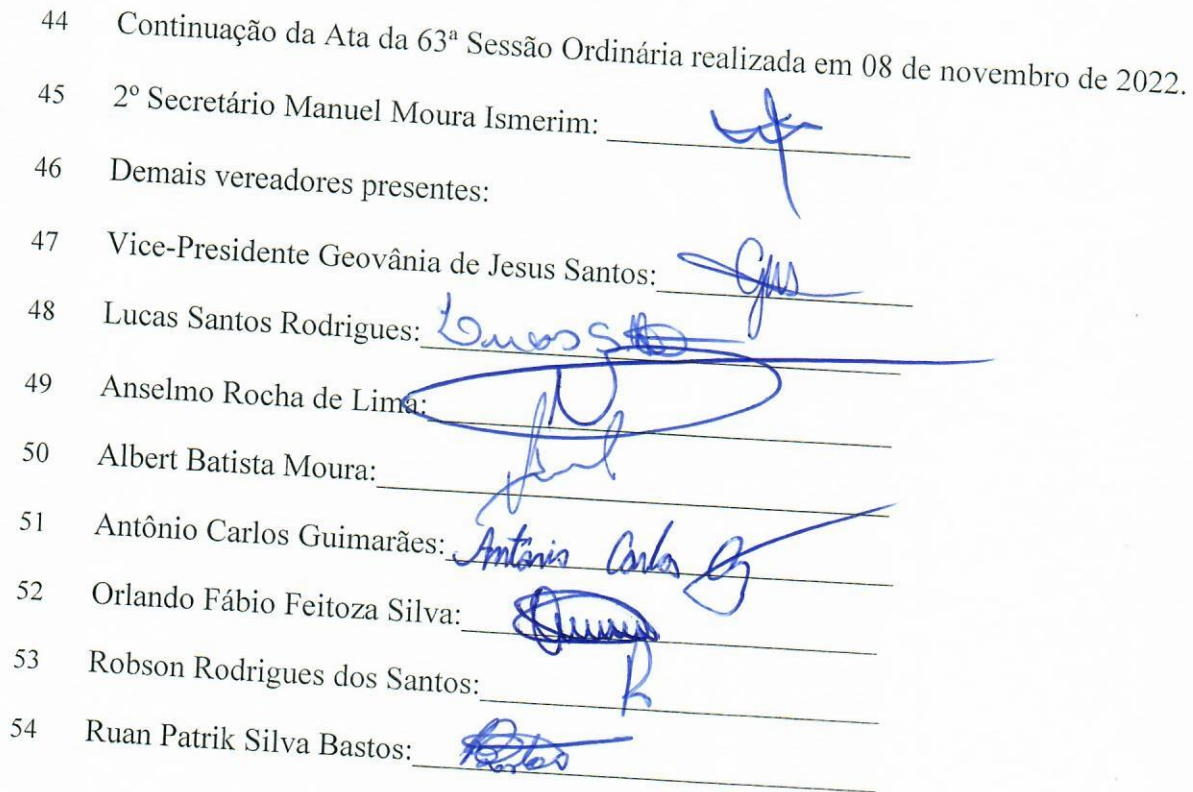 44 Continuação da Ata da 63ª Sessão Ordinária realizada em 08 de novembro de 2022.
45 2º Secretário Manuel Moura Ismerim:
46 Demais vereadores presentes:
47 Vice-Presidente Geovânia de Jesus Santos:
48 Lucas Santos Rodrigues: Lucas
49 Anselmo Rocha de Lima:
50 Albert Batista Moura:
51 Antônio Carlos Guimarães: Antônio Carlos
52 Orlando Fábio Feitoza Silva:
53 Robson Rodrigues dos Santos: R
54 Ruan Patrik Silva Bastos: